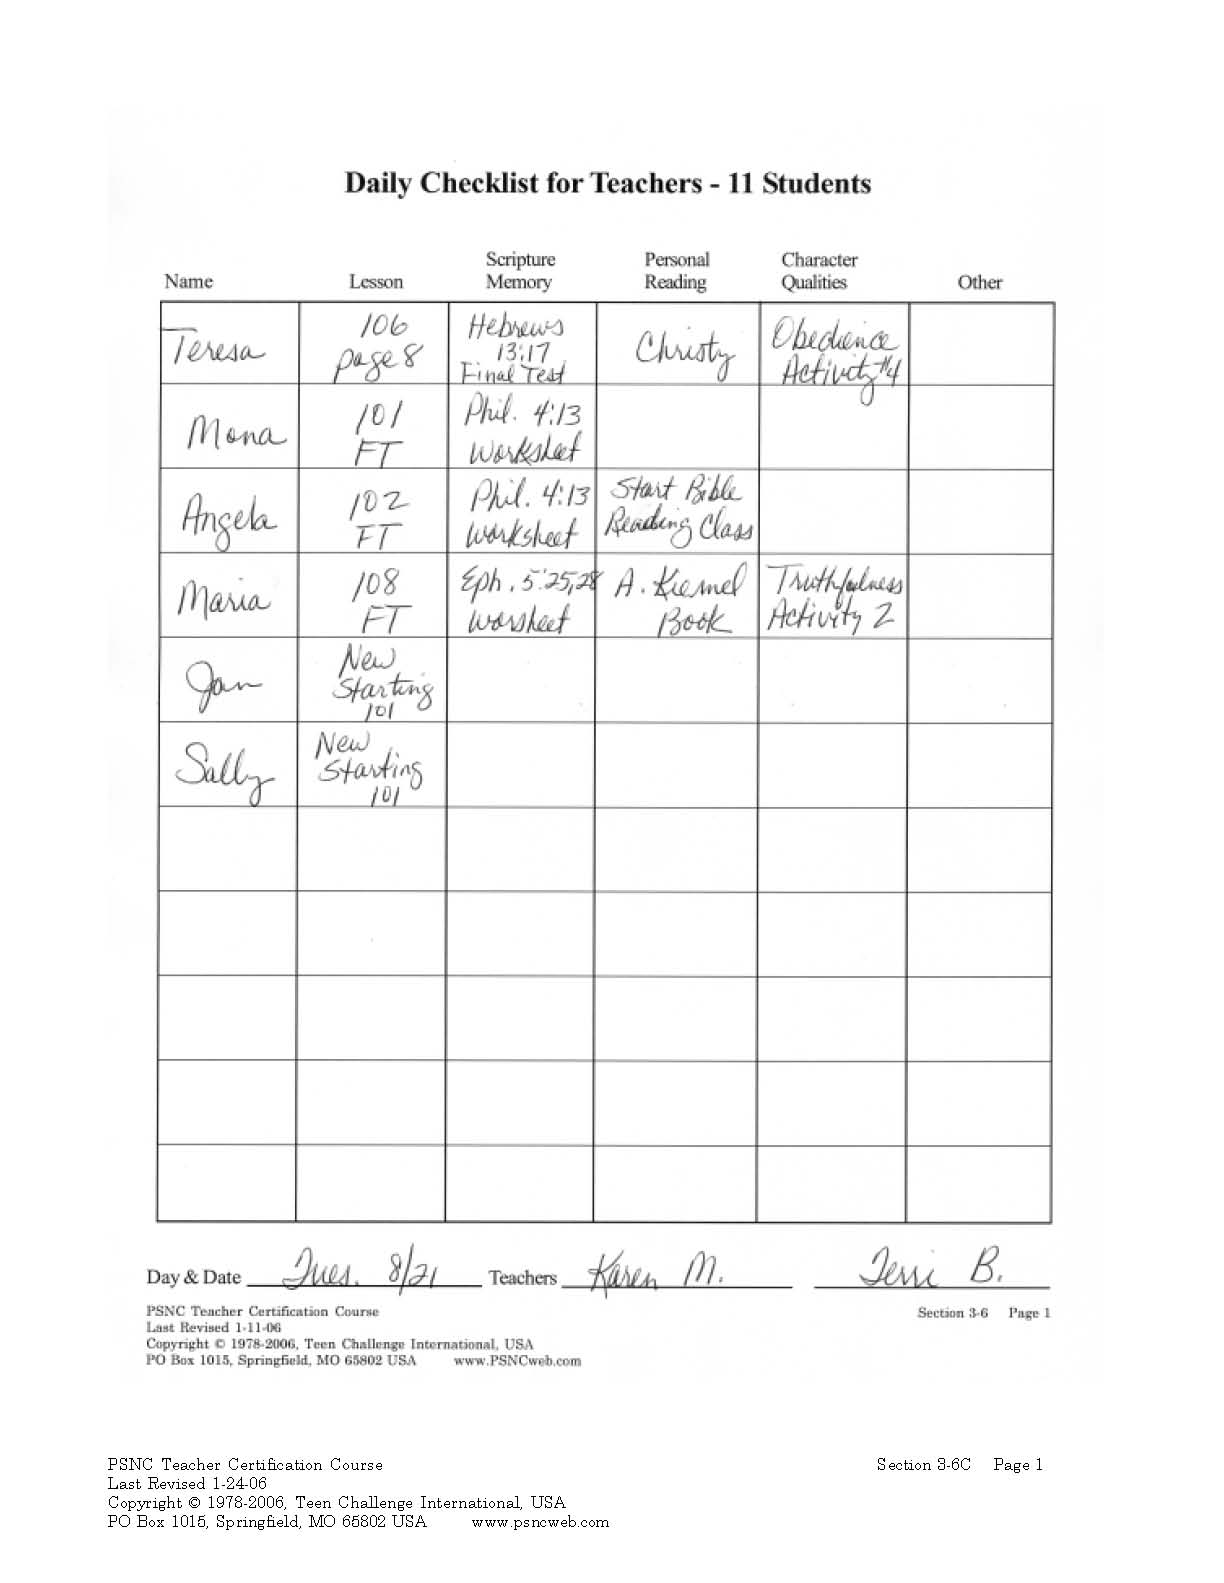 Daily Checklist for Teachers - 11 Students
Name Lesson Scripture Memory Personal Reading Character Qualities Other
Teresa 106 page 8 Hebrews 13:17 Final Test Christy Obedience Activity #4
Mona 101 FT Phil. 4:13 Worksheet
Angela 102 FT Phil. 4:13 Worksheet Start Bible Reading Class
Maria 108 FT Eph. 5:25,28 Worsheet A. Kiemel Book Truthfulness Activity 2
Jan New Starting 101
Sally New Starting 101
Day & Date Tues. 8/21 Teachers Karen M. Terri B.
PSNC Teacher Certification Course Section 3-6 Page 1
Last Revised 1-11-06
Copyright © 1978-2006, Teen Challenge International, USA
PO Box 1015, Springfield, MO 65802 USA www.PSNCweb.com
PSNC Teacher Certification Course Section 3-6C Page 1
Last Revised 1-24-06
Copyright © 1978-2006, Teen Challenge International, USA
PO Box 1015, Springfield, MO 65802 USA www.psncweb.com